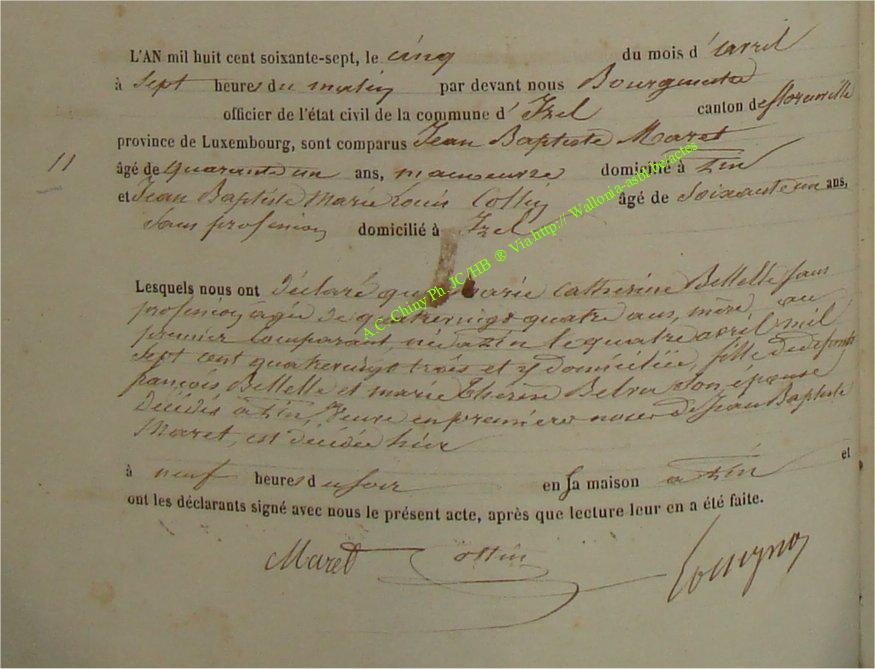 L'AN mil huit cent soixante-sept, le cinq du mois d'avril
à sept heures du matin par devant nous Bourgmestre
officier de l'état civil de la commune d'Izel canton de florenville
province de Luxembourg, sont comparus Jean Baptiste Maret
11 âgé de quarante un ans, manoeuvre domicilié à
et Jean Baptiste Marie Louis Collin âgé de soixante un ans,
sans profession domicilié à Izel
Lesquels nous ont déclaré que marie Catherine Bellelle sans
profession, agée de quatrevingt quatre ans, mère au
premier comparant, née à le quatre avril mil
sept cent quatrevingt trois et y domiciliée, fille de défunts
françois Bellelle et marie thérèse son épouse
décédés à Veuve en premières noces de Jean Baptiste
Maret, est décédée hier
à neuf heures du soir en sa maison à et
ont les déclarants signé avec nous le présent acte, après que lecture leur en a été faite.
Maret Collin
A.C. Chiny Ph JC/HB ® Via http:// Wallonia-asbl.be/actes